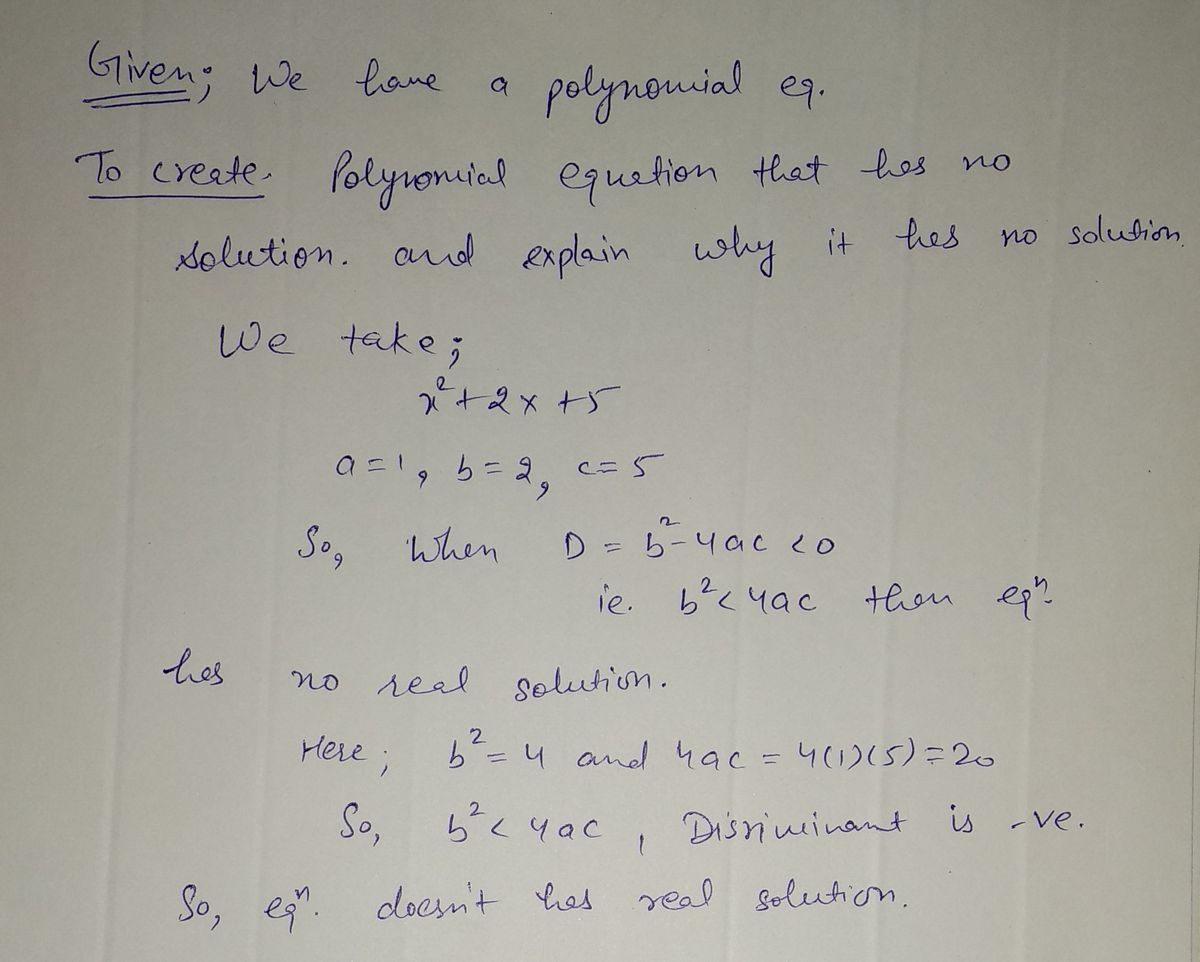 Given; We have a polynomial eq.
To create. Polynomial equation that has no
solution. and explain why it has no solution.
We take;
x²+2x+5
a=1, b=2, c=5
So, When D = b²-4ac <0
ie. b²<4ac then eqⁿ.
has no real solution.
Here; b²=4 and 4ac = 4(1)(5)=20
So, b²<4ac, Disriminant is -ve.
So, eqⁿ. doesn't has real solution.